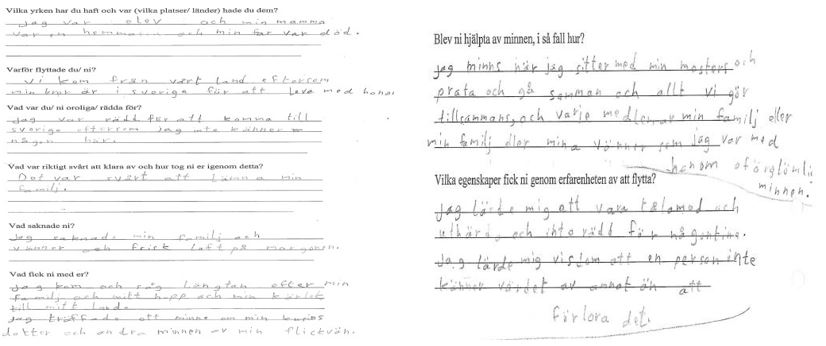 Vilka yrken har du haft och var (vilka platser/ länder) hade du dem?
Jag var elev och min mamma
var en hemma och min far var död.
Varför flyttade du/ ni?
Vi kom från vårt land eftersom
min bror är i sverige för att leva med honom
Vad var du/ ni oroliga/ rädda för?
Jag var rädd för att komma till
sverige eftersom jag inte känner
någon här.
Vad var riktigt svårt att klara av och hur tog ni er igenom detta?
Det var svårt att lämna min
familj.
Vad saknade ni?
Jag saknade min familj och
vänner och frisk luft på morgonen.
Vad fick ni med er?
Jag kom och såg längtan efter min
familj och mitt hopp och min kärlek
till mitt land.
Jag träffade ett minne om min kusins
dotter och andra minnen av min flickvän.
Blev ni hjälpta av minnen, i så fall hur?
jag minns när jag sitter med min mosters och
prata och gå samman och allt vi gör
tillsammans, och varje medlem av min familj eller
min familj eller mina vänner som jag var med
henom oförglömli
minnen.
Vilka egenskaper fick ni genom erfarenheten av att flytta?
Jag lärde mig att vara tålamod och
uthärda och inte rädd för någonting.
Jag lärde mig visdom att en person inte
känner värdet av annat än att
förlora det.